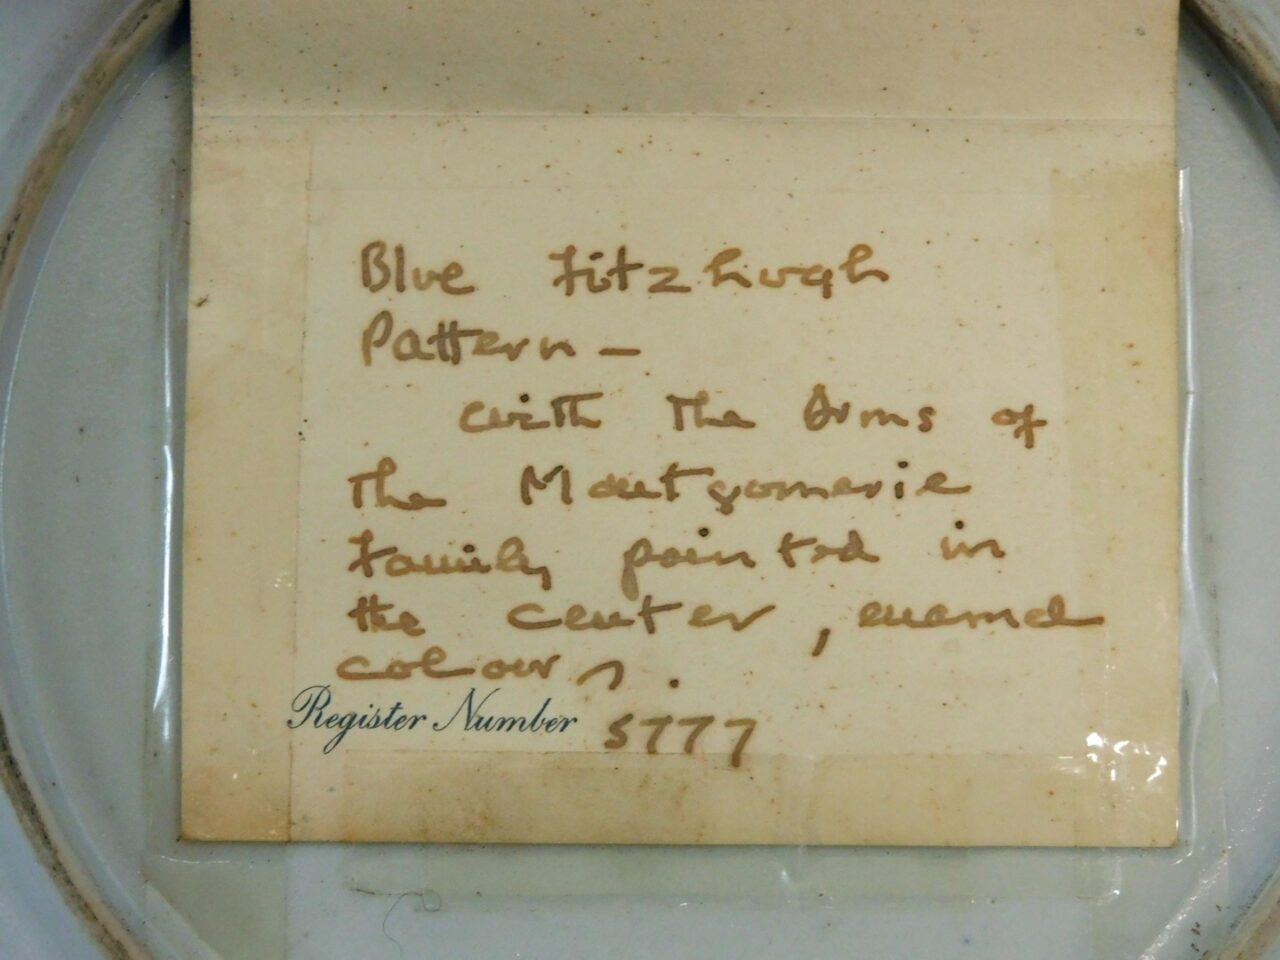 Blue Fitzhugh
Pattern –
with the Arms of
the Montgomerie
family painted in
the center, enamel
colours.
Register Number 5777